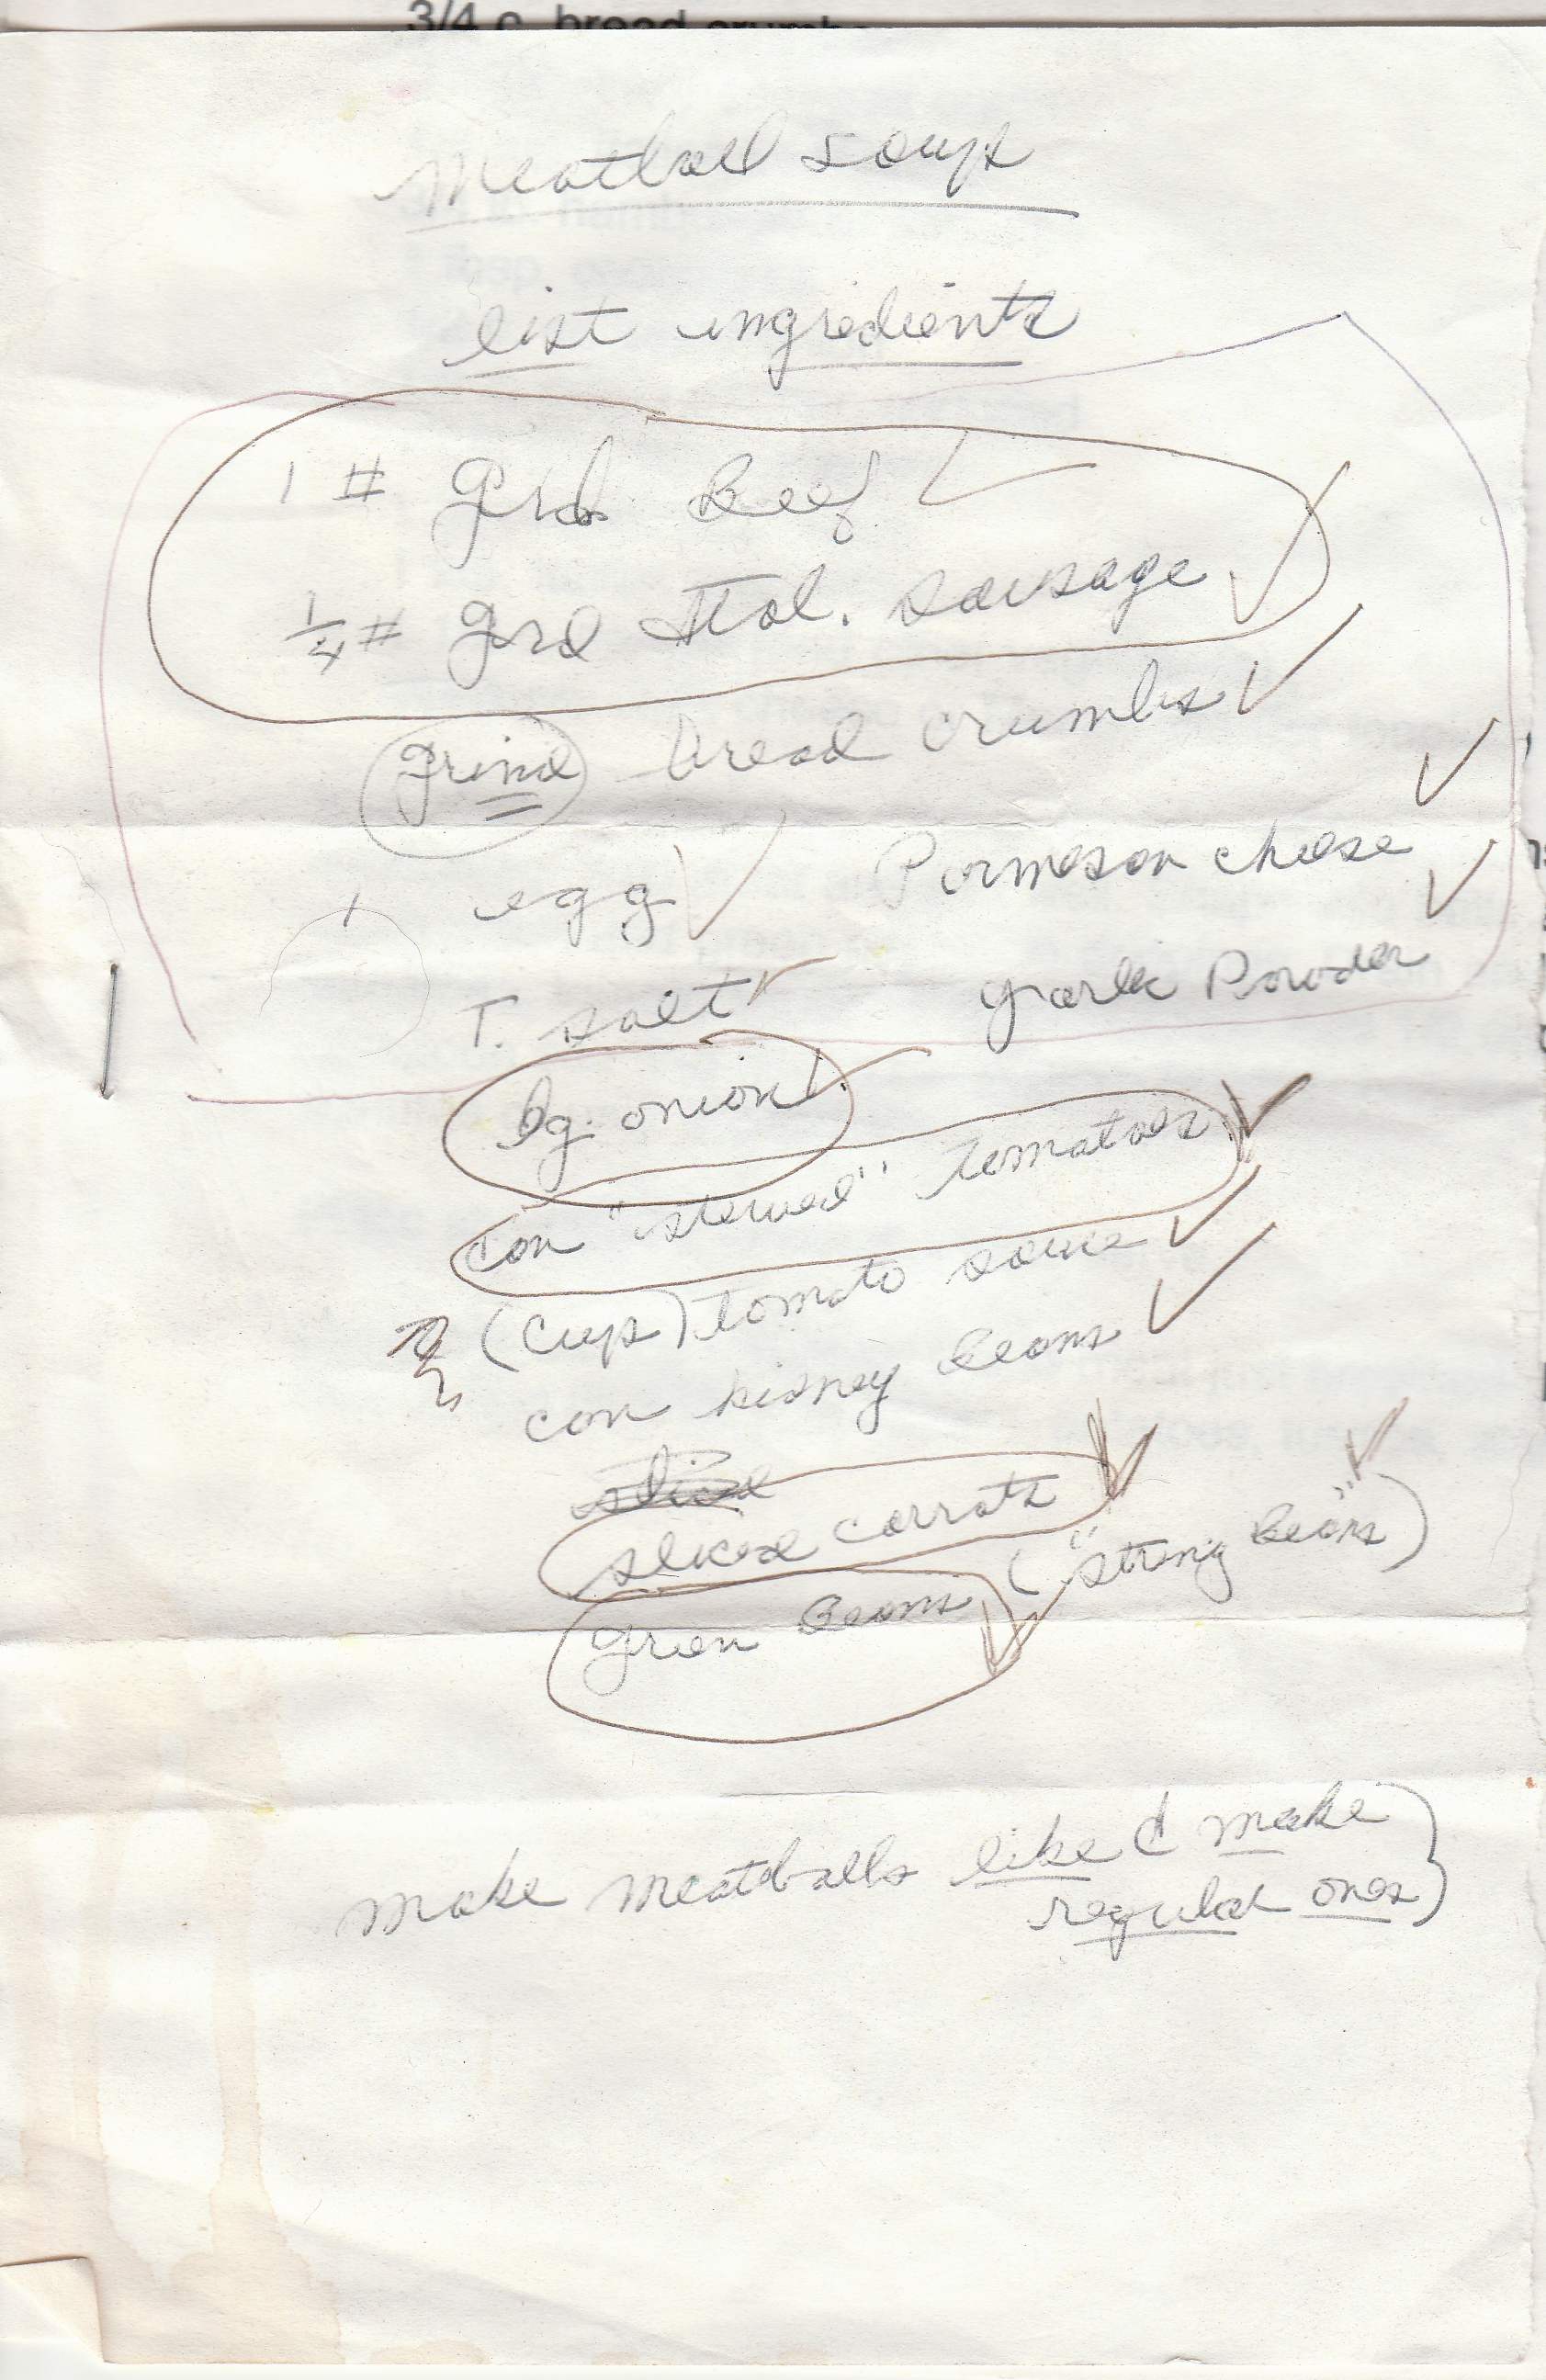 3/4 c. bread crumbs
Meatball soup
list ingredients
1 # Grd. Beef
# Grd Ital. sausage
Grind bread crumbs
1 egg
Parmesan cheese
T. salt
garlic Powder
lg. onion
can "stewed" tomatoes
(cups) tomato sauce
can kidney beans
sliced
sliced carrots
green beans ("string beans")
make meatballs like I make
regular ones